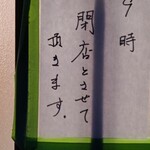 9時
閉店とさせて
頂きます.